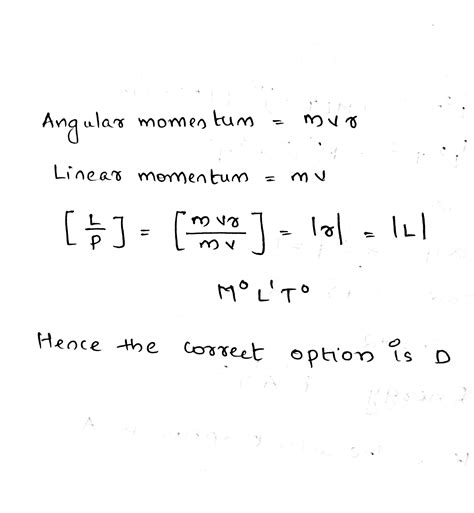 Angular momentum = mvr
Linear momentum = mv
[L/P] = [mvr/mv] = |r| = |L|
M⁰L¹T⁰
Hence the correct option is D